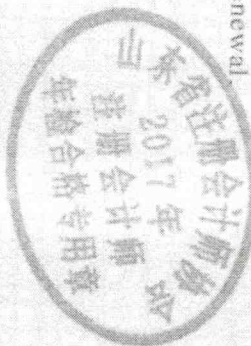 newal
山东省注册会计师协会
2017 年
注册会计师
年检合格专用章